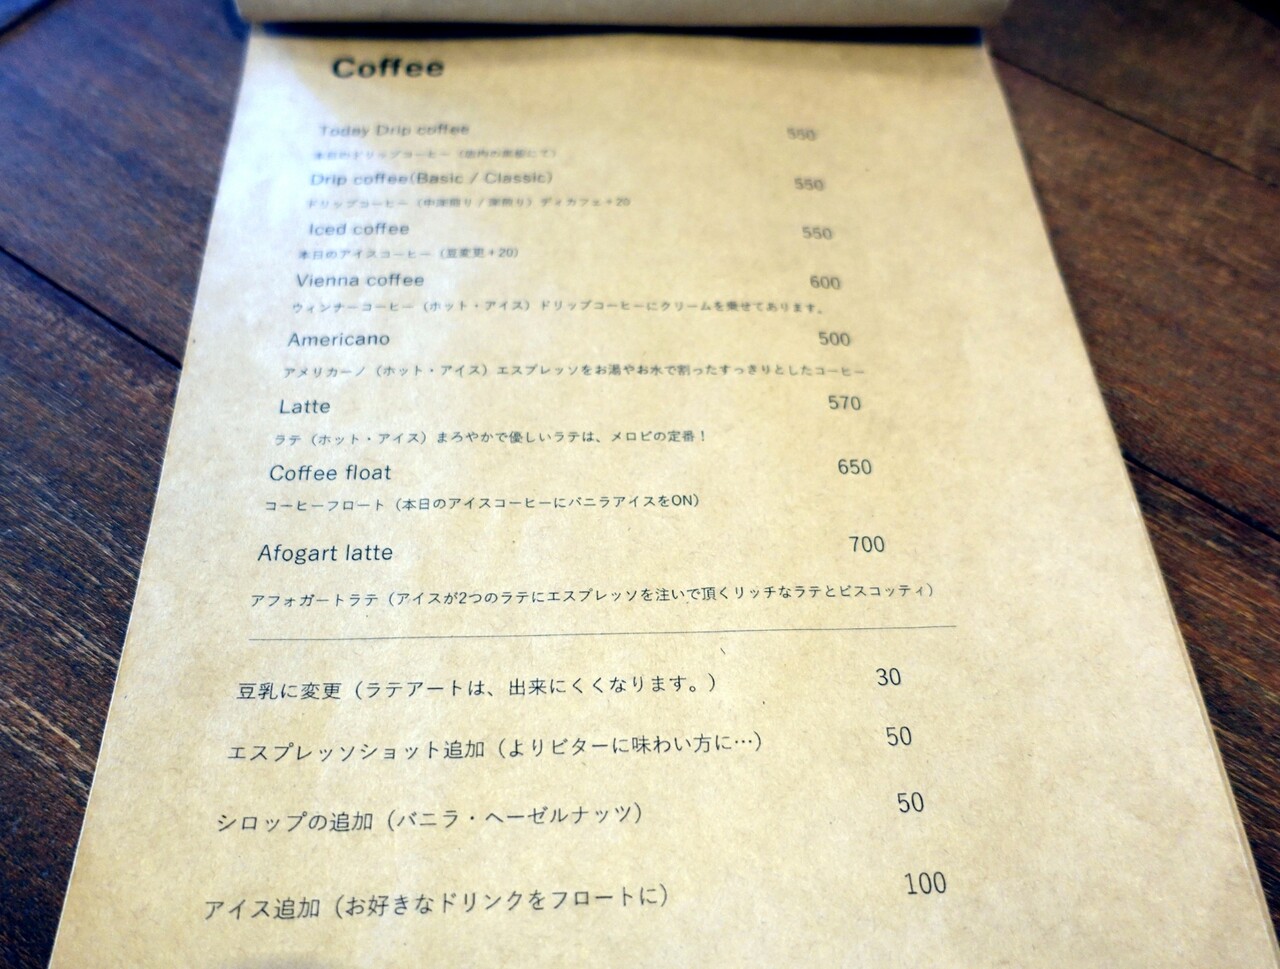 Coffee
Today Drip coffee 550
本日のドリップコーヒー（店内の黒板にて）
Drip coffee(Basic / Classic) 550
ドリップコーヒー（中深煎り / 深煎り）ディカフェ+20
Iced coffee 550
本日のアイスコーヒー（豆変更+20）
Vienna coffee 600
ウィンナーコーヒー（ホット・アイス）ドリップコーヒーにクリームを乗せてあります。
Americano 500
アメリカーノ（ホット・アイス）エスプレッソをお湯やお水で割ったすっきりとしたコーヒー
Latte 570
ラテ（ホット・アイス）まろやかで優しいラテは、メロビの定番！
Coffee float 650
コーヒーフロート（本日のアイスコーヒーにバニラアイスをON）
Afogart latte 700
アフォガートラテ（アイスが2つのラテにエスプレッソを注いで頂くリッチなラテとビスコッティ）
豆乳に変更（ラテアートは、出来にくくなります。） 30
エスプレッソショット追加（よりビターに味わい方に…） 50
シロップの追加（バニラ・ヘーゼルナッツ） 50
アイス追加（お好きなドリンクをフロートに） 100